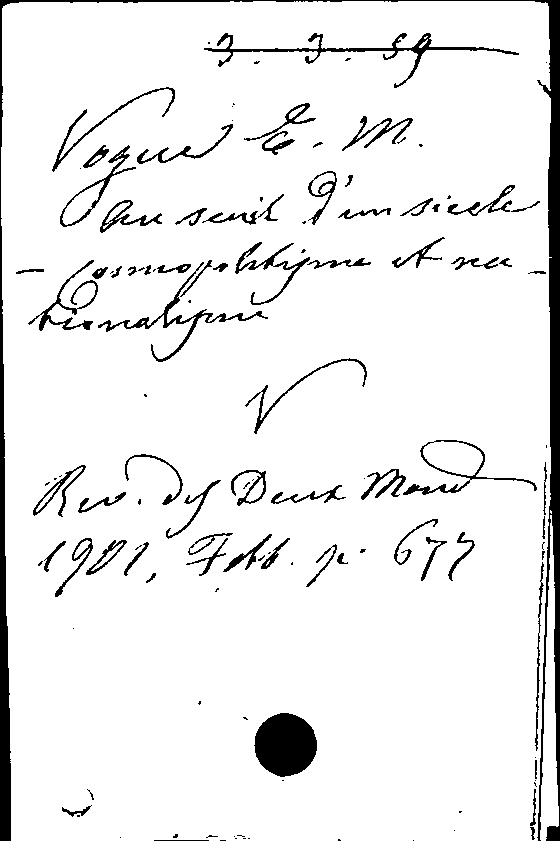 3. 3. 59
Vogue E. M.
Au seuil d'un siecle
– Cosmopolitisme et na-
tionalisme
V
Rev. des Deux Mond
1901, Febb. p. 677